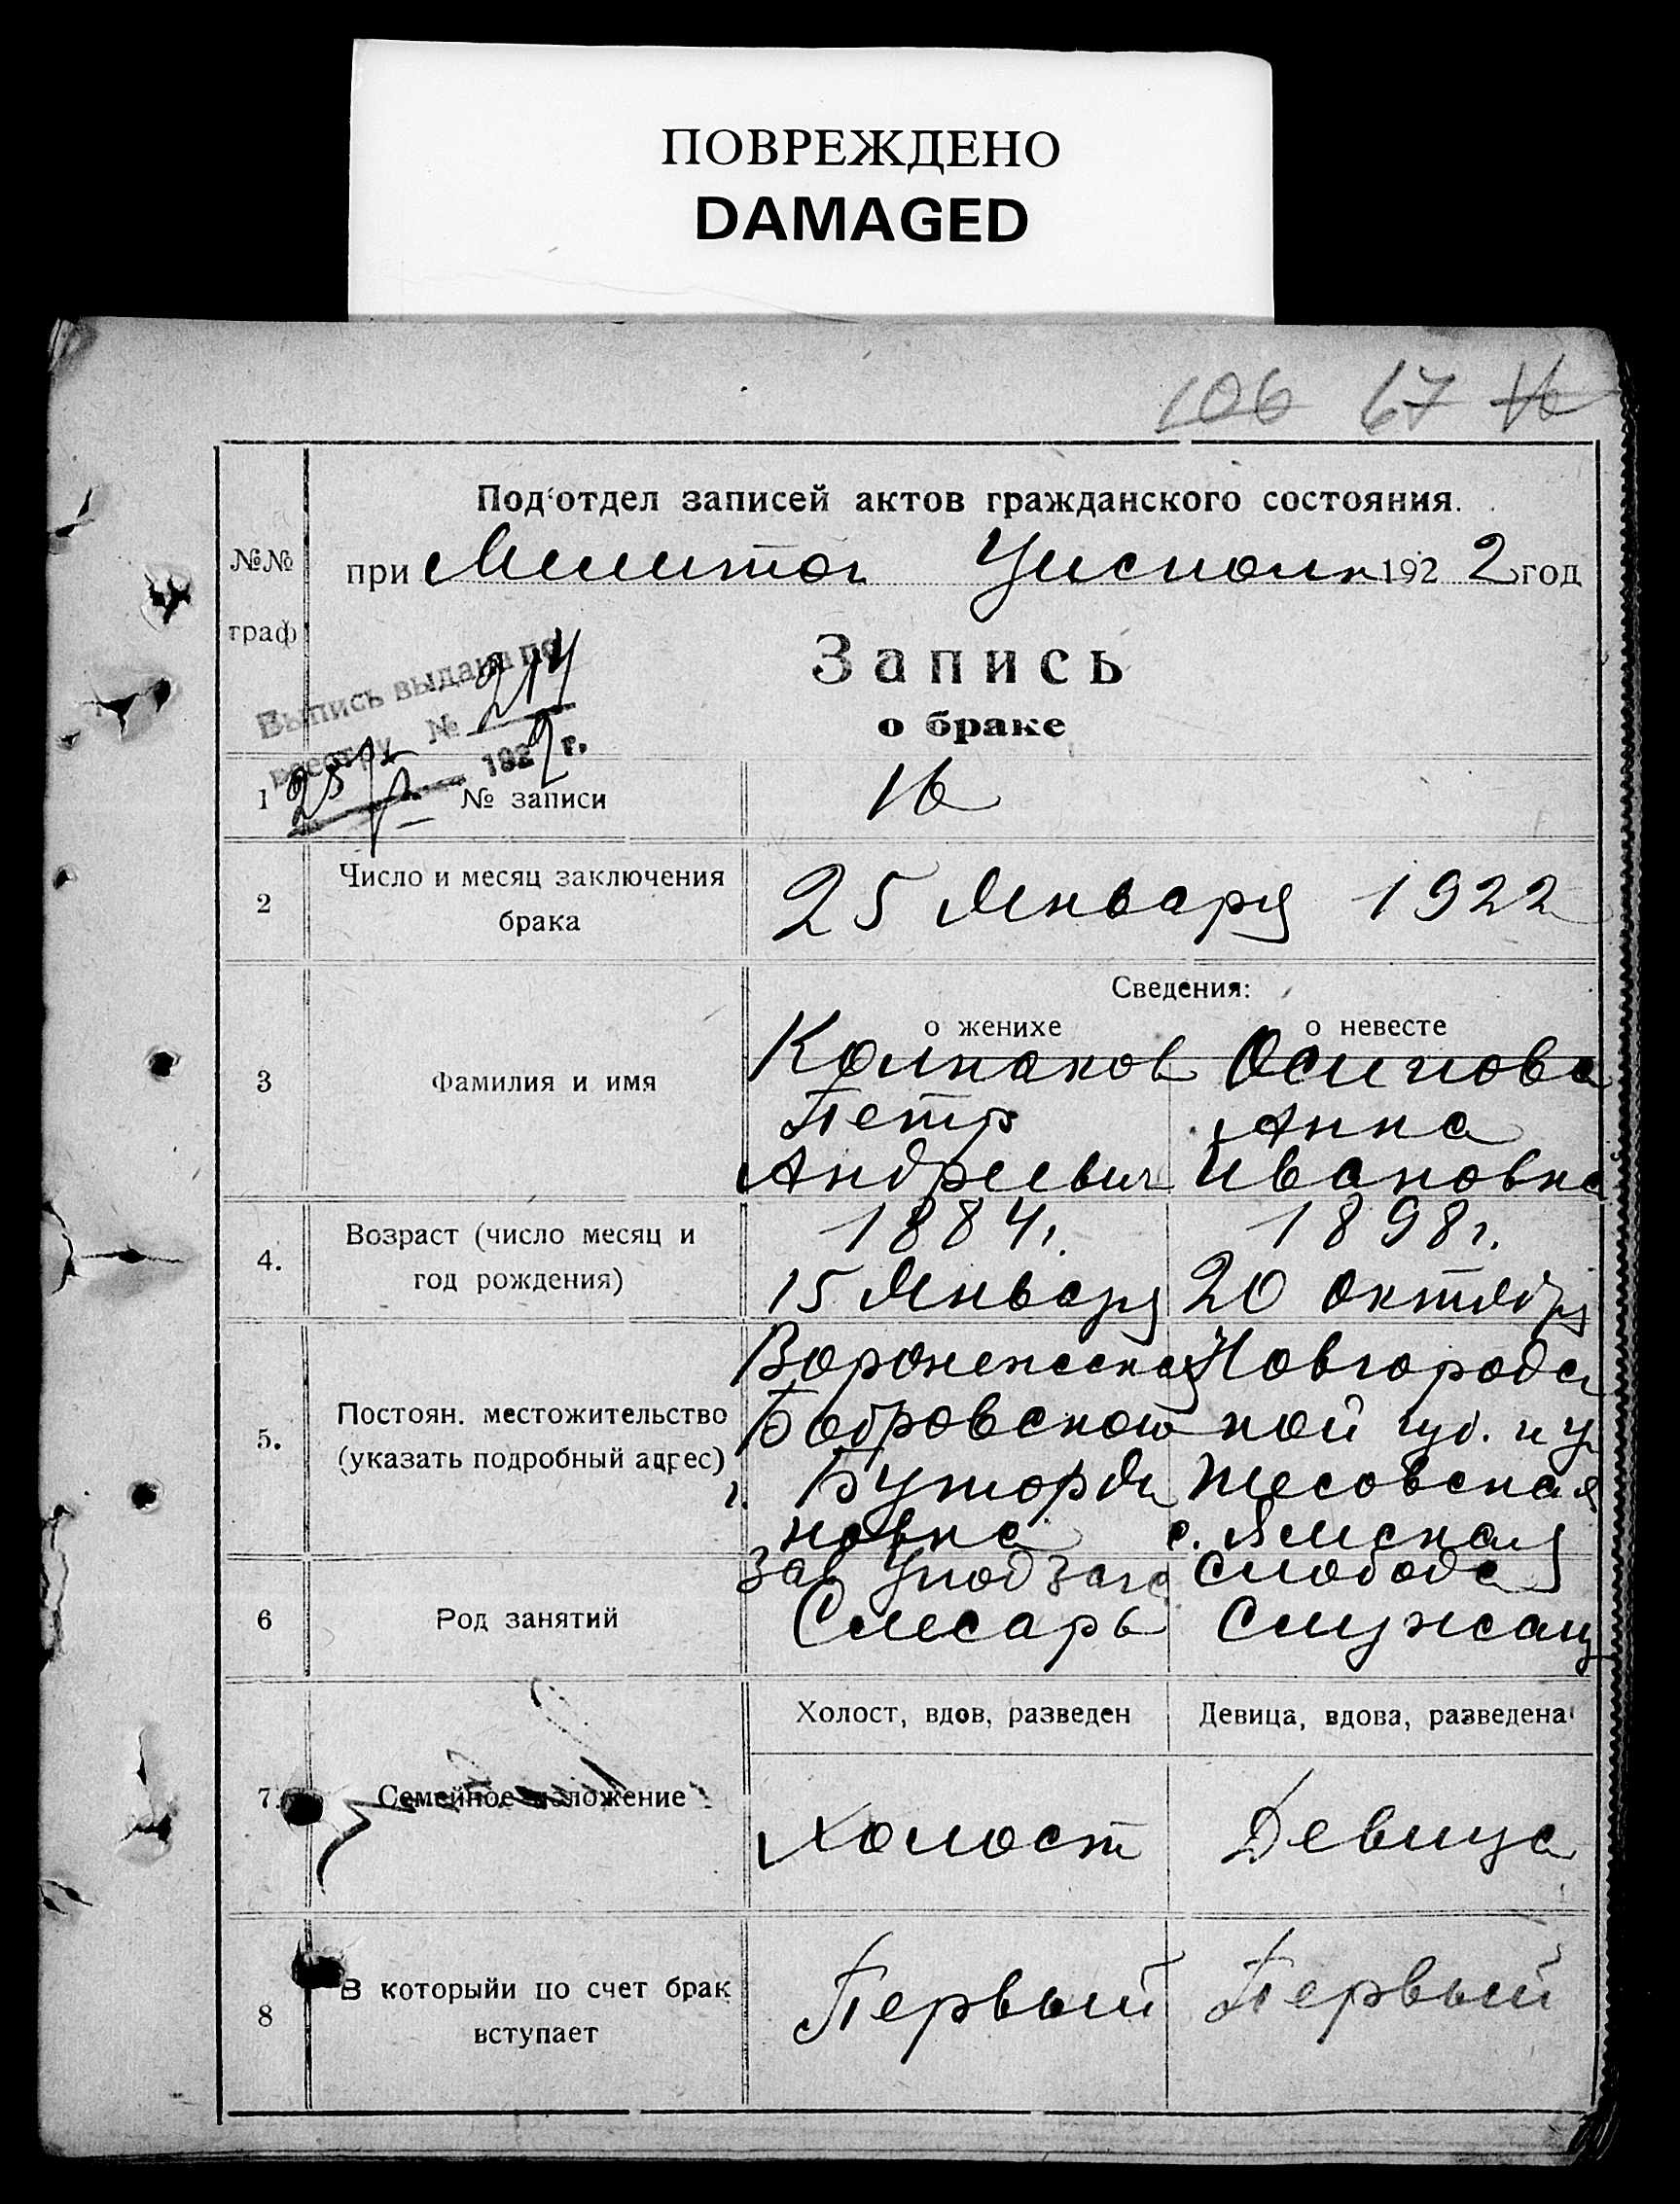 ПОВРЕЖДЕНО
DAMAGED
106 67 16
Под'отдел записей актов гражданского состояния.
№№ граф
при Мелитоп Уисполк 1922 год
Выпись выдана по
реестру № 214
25/I 1922 г.
Запись
о браке
1 № записи 16
2 Число и месяц заключения брака 25 Января 1922
Сведения:
о женихе о невесте
3 Фамилия и имя Колпаков Осипова
Петр Анна
Андреевич Ивановна
4. Возраст (число месяц и год рождения) 1884г. 1898г.
15 Января 20 октября
5. Постоян. местожительство (указать подробный адрес) Воронежская Новгородс
Бобровской кой губ. и у
Бутурли Тесовская
новка с. Ямская
Зав слобода
6 Род занятий Слесарь Служащ
Холост, вдов, разведен Девица, вдова, разведена
7. Семейное положение Холост Девица
8 В которыйи по счет брак вступает Первый Первый